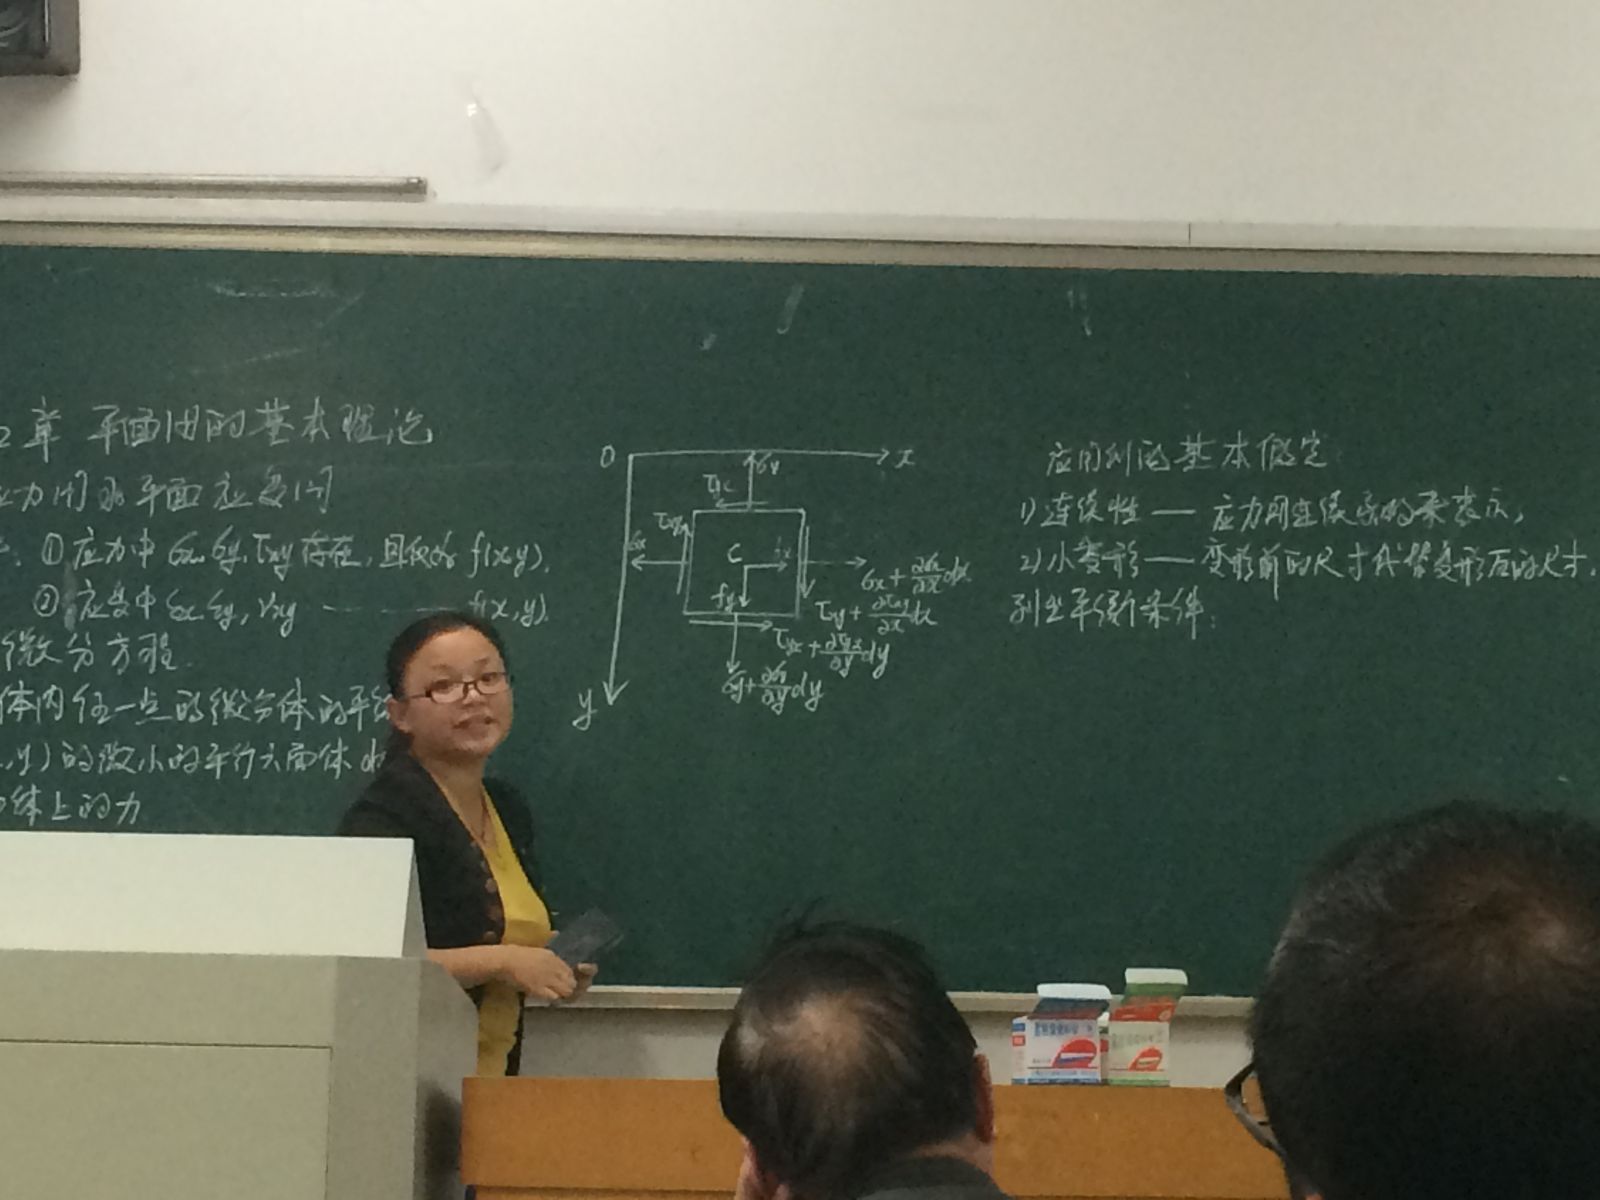 2章 平面问题的基本理论
应力问题 平面应变问
①应力中 σx, σy, τxy 存在, 且仅为 f(x,y).
②应变中 εx, εy, γxy —— f(x,y).
微分方程.
体内任一点的微分体的平衡
,y)的微小的平行六面体
体上的力
O
x
y
σy
τyx
τxy
σx
C
fx
fy
σx + ∂σx/∂x dx
τxy + ∂τxy/∂x dx
τyx + ∂τyx/∂y dy
σy + ∂σy/∂y dy
应用到的基本假定:
1)连续性 — 应力用连续函数来表示,
2)小变形 — 变形前的尺寸代替变形后的尺寸.
列出平衡条件: